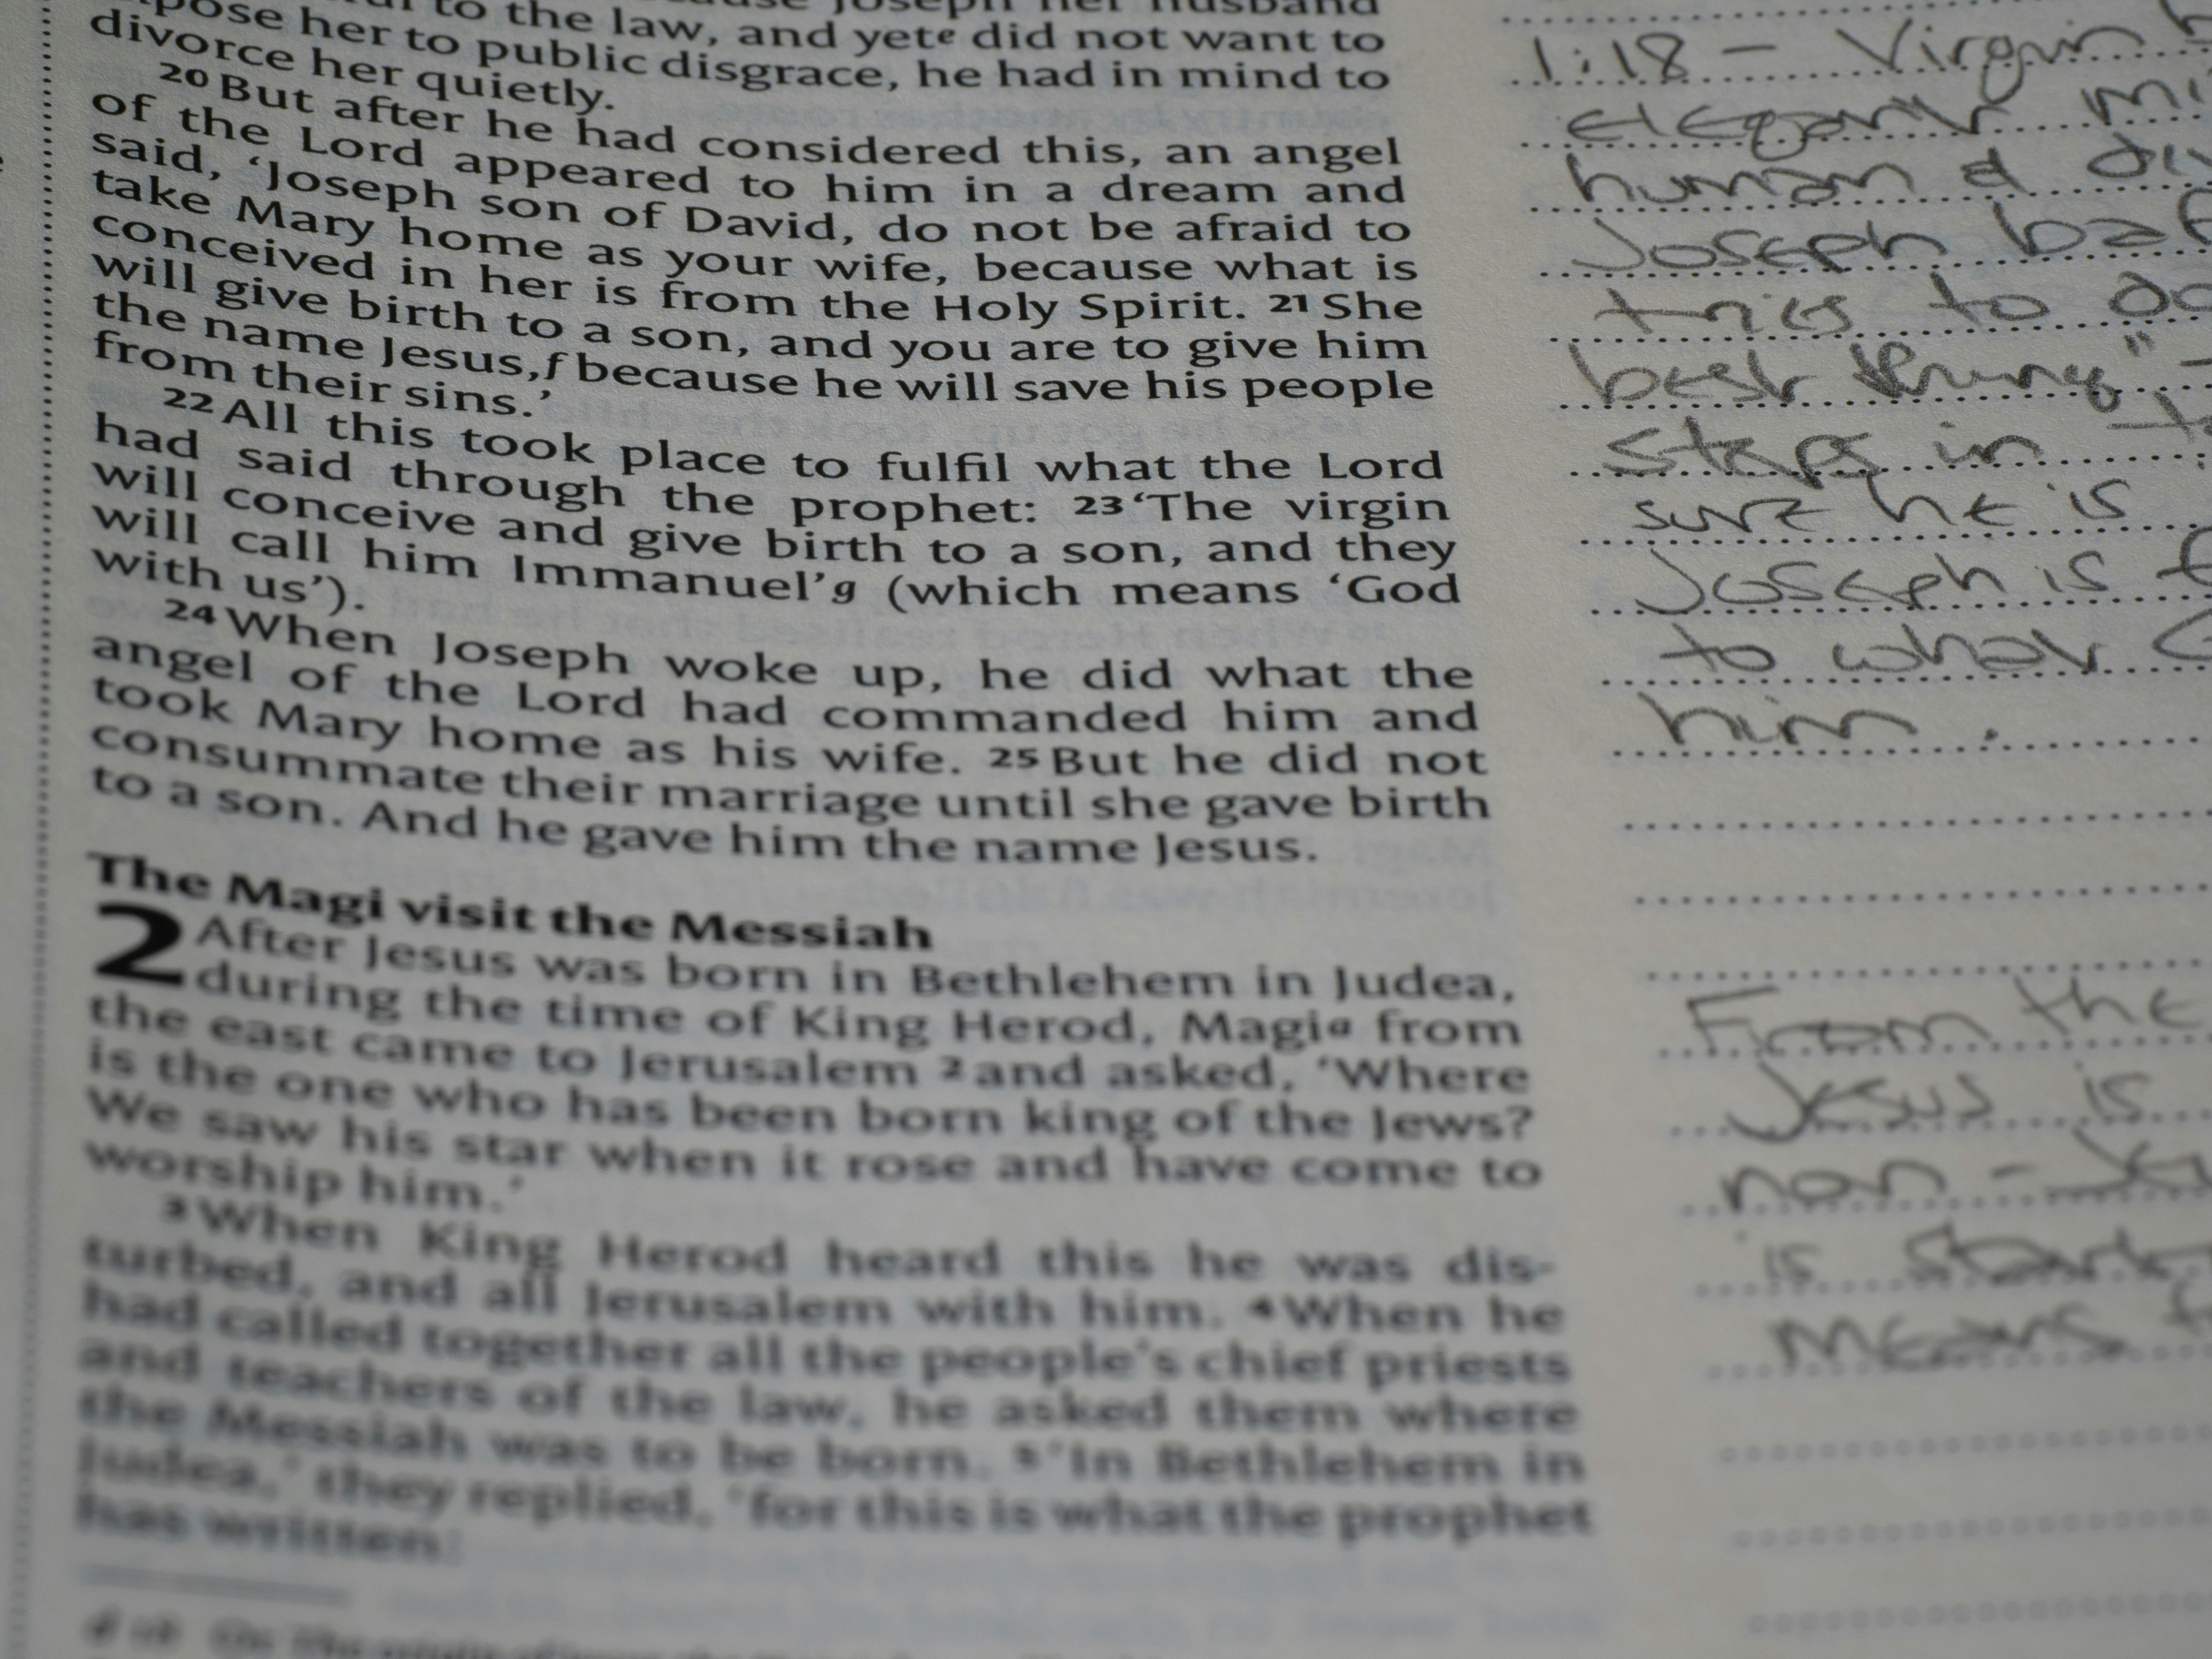 to the law, and yet e did not want to
her to public disgrace, he had in mind to
divorce her quietly.
20 But after he had considered this, an angel
of the Lord appeared to him in a dream and
said, ‘Joseph son of David, do not be afraid to
take Mary home as your wife, because what is
conceived in her is from the Holy Spirit. 21 She
will give birth to a son, and you are to give him
the name Jesus, f because he will save his people
from their sins.’
22 All this took place to fulfil what the Lord
had said through the prophet: 23 ‘The virgin
will conceive and give birth to a son, and they
will call him Immanuel’ g (which means ‘God
with us’).
24 When Joseph woke up, he did what the
angel of the Lord had commanded him and
took Mary home as his wife. 25 But he did not
consummate their marriage until she gave birth
to a son. And he gave him the name Jesus.
The Magi visit the Messiah
2 After Jesus was born in Bethlehem in Judea,
during the time of King Herod, Magi a from
the east came to Jerusalem 2 and asked, ‘Where
is the one who has been born king of the Jews?
We saw his star when it rose and have come to
worship him.’
3 When King Herod heard this he was dis-
turbed, and all Jerusalem with him. 4 When he
had called together all the people’s chief priests
and teachers of the law, he asked them where
the Messiah was to be born. 5 ‘In Bethlehem in
Judea,’ they replied, ‘for this is what the prophet
has written:
1:18 – Virgin
elegant
human &
Joseph
tries to
best thing" -
steps in
sure he is
Joseph is
to what
him.
From the
Jesus is
non -
is
means